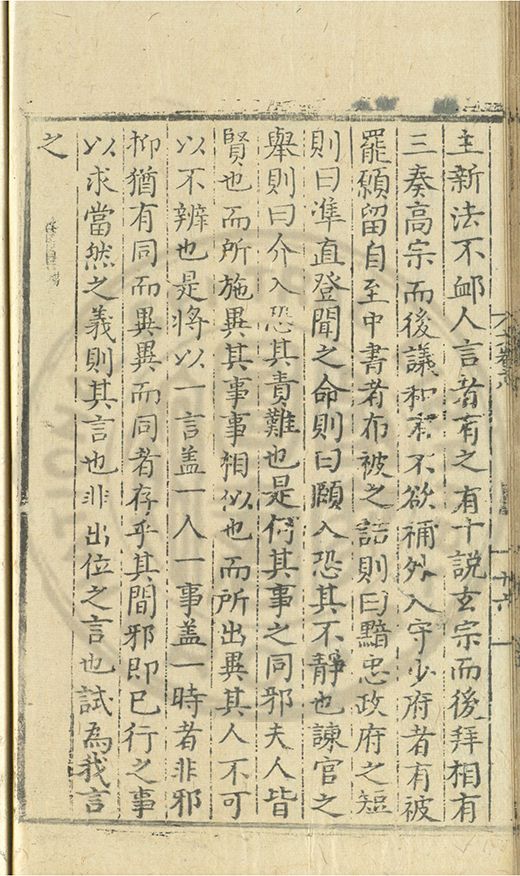 主新法不䘏人言者有之有十説玄宗而後拜相有
三奏高宗而後議和有不欲補外入守少府者有被
罷願留自至中書者布被之詰則曰黯忠政府之短
則曰準直登聞之命則曰頤入恐其不靜也諫官之
舉則曰介入恐其責難也是何其事之同邪夫人皆
賢也而所施異其事事相似也而所出異其人不可
以不辨也是將以一言盖一人一事盖一時者非邪
抑猶有同而異異而同者存乎其間邪即已行之事
以求當然之義則其言也非出位之言也試為我言
之